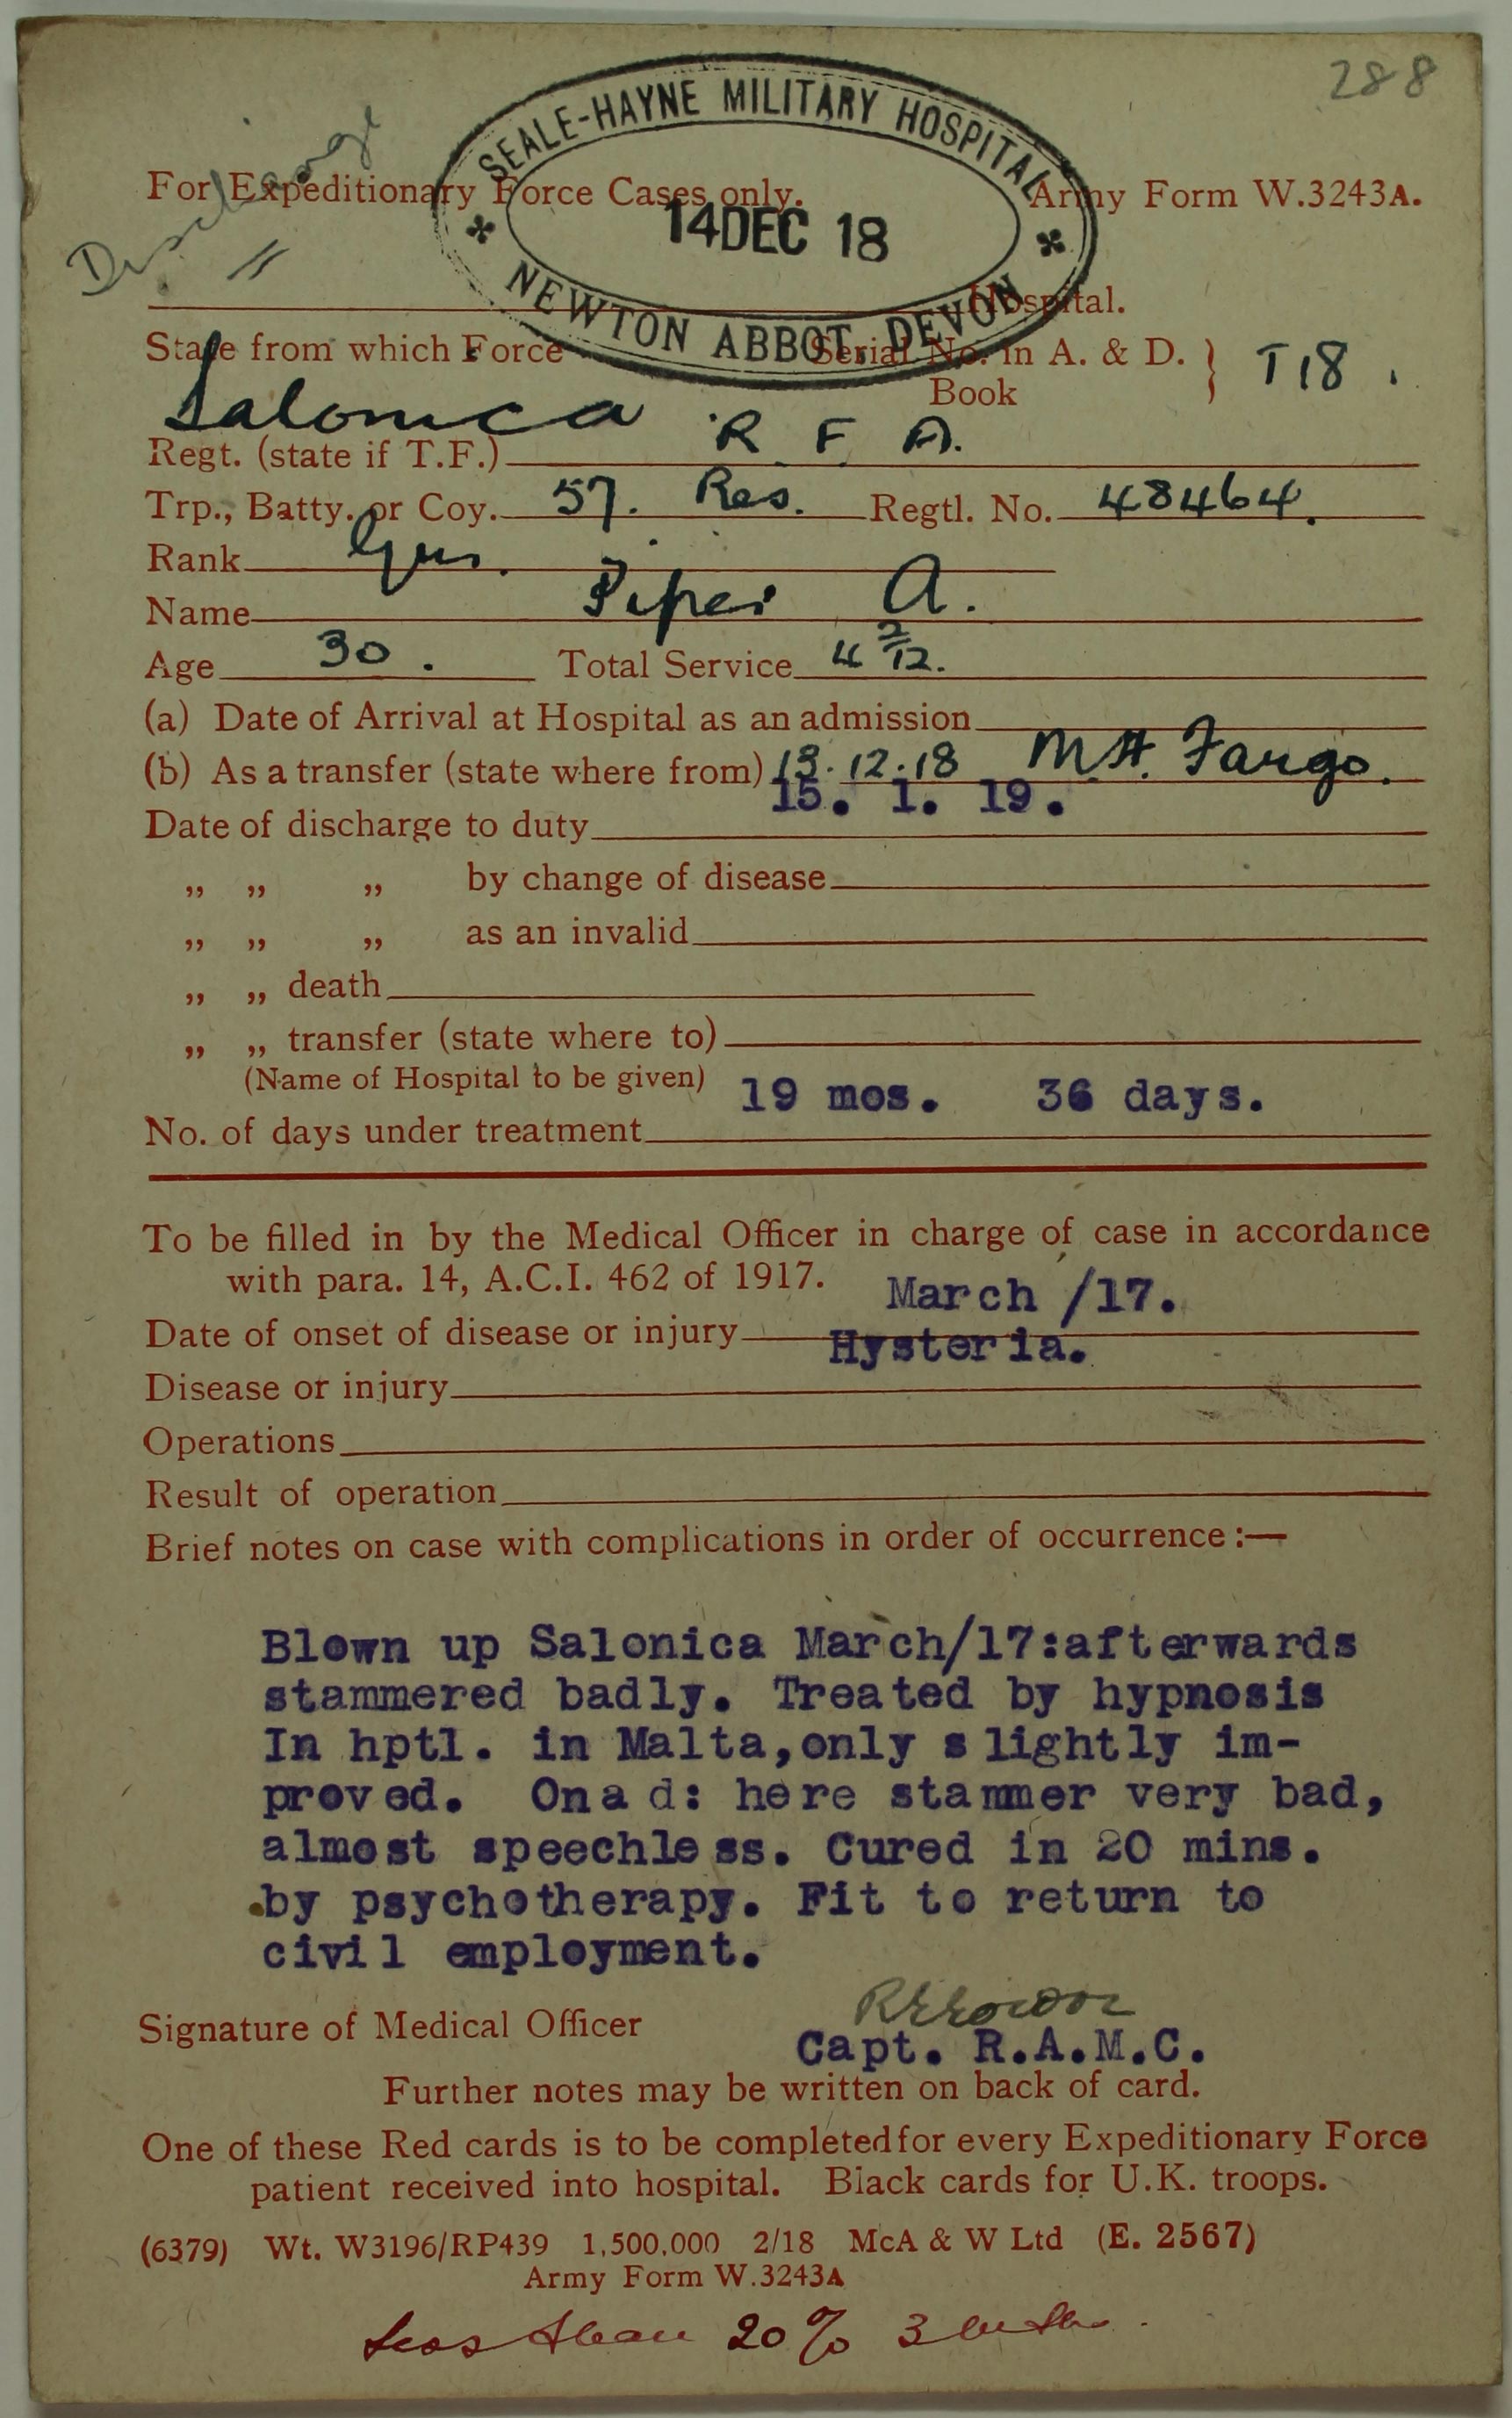 288
Discharge
SEALE-HAYNE MILITARY HOSPITAL
14 DEC 18
NEWTON ABBOT, DEVON
For Expeditionary Force Cases only. Army Form W.3243A.
Hospital.
State from which Force Serial No. in A. & D. Book } T18.
Salonica
Regt. (state if T.F.) R F A.
Trp., Batty. or Coy. 57. Res. Regtl. No. 48464.
Rank Gnr.
Name Piper A.
Age 30. Total Service 4 2/12.
(a) Date of Arrival at Hospital as an admission
(b) As a transfer (state where from) 13.12.18 M.H. Fargo.
Date of discharge to duty 15. 1. 19.
„ „ „ by change of disease
„ „ „ as an invalid
„ „ death
„ „ transfer (state where to)
(Name of Hospital to be given)
No. of days under treatment 19 mos. 36 days.
To be filled in by the Medical Officer in charge of case in accordance
with para. 14, A.C.I. 462 of 1917.
Date of onset of disease or injury March /17.
Disease or injury Hysteria.
Operations
Result of operation
Brief notes on case with complications in order of occurrence :—
Blown up Salonica March/17:afterwards
stammered badly. Treated by hypnosis
In hptl. in Malta,only slightly im-
proved. On ad: here stammer very bad,
almost speechless. Cured in 20 mins.
by psychotherapy. Fit to return to
civil employment.
Signature of Medical Officer
Capt. R.A.M.C.
Further notes may be written on back of card.
One of these Red cards is to be completed for every Expeditionary Force
patient received into hospital. Black cards for U.K. troops.
(6379) Wt. W3196/RP439 1,500,000 2/18 McA & W Ltd (E. 2567)
Army Form W.3243A
Less than 20% 3